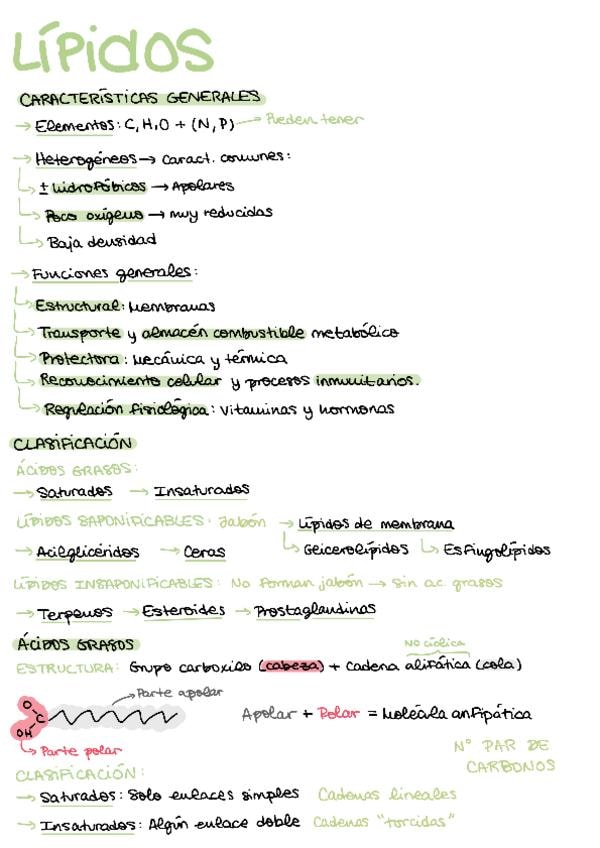 LÍPIDOS
CARACTERÍSTICAS GENERALES
→ Elementos: C, H, O + (N, P) → Pueden tener
→ Heterogéneos → Caract. comunes:
± hidrofóbicos → Apolares
Poco oxígeno → muy reducidas
Baja densidad
→ Funciones generales:
Estructural: Membranas
Transporte y almacén combustible metabólico
Protectora: Mecánica y térmica
Reconocimiento celular y procesos inmunitarios.
Regulación fisiológica: Vitaminas y hormonas
CLASIFICACIÓN
ÁCIDOS GRASOS:
→ Saturados → Insaturados
LÍPIDOS SAPONIFICABLES: Jabón → Lípidos de membrana
→ Acilglicéridos → Ceras Glicerolípidos Esfingolípidos
LÍPIDOS INSAPONIFICABLES: No forman jabón → Sin ac. grasos
→ Terpenos → Esteroides → Prostaglandinas
ÁCIDOS GRASOS
No cíclica
ESTRUCTURA: Grupo carboxilo (cabeza) + Cadena alifática (cola)
→ Parte apolar
O
C
OH
Apolar + Polar = Molécula anfipática
Parte polar
Nº PAR DE
CARBONOS
CLASIFICACIÓN:
→ Saturados: Solo enlaces simples Cadenas lineales
→ Insaturados: Algún enlace doble Cadenas "torcidas"